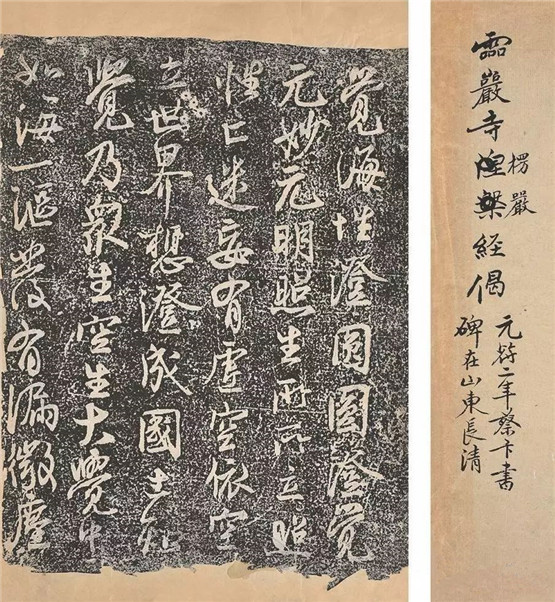 靈巖寺涅槃經偈
楞嚴
元符二年蔡卞書
碑在山東長清
覺海性澄圓圓澄覺
元妙元明照生所所立照
性亡迷妄有虛空依空
立世界想澄成國土知
覺乃眾生空生大覺中
如海一漚發有漏微塵